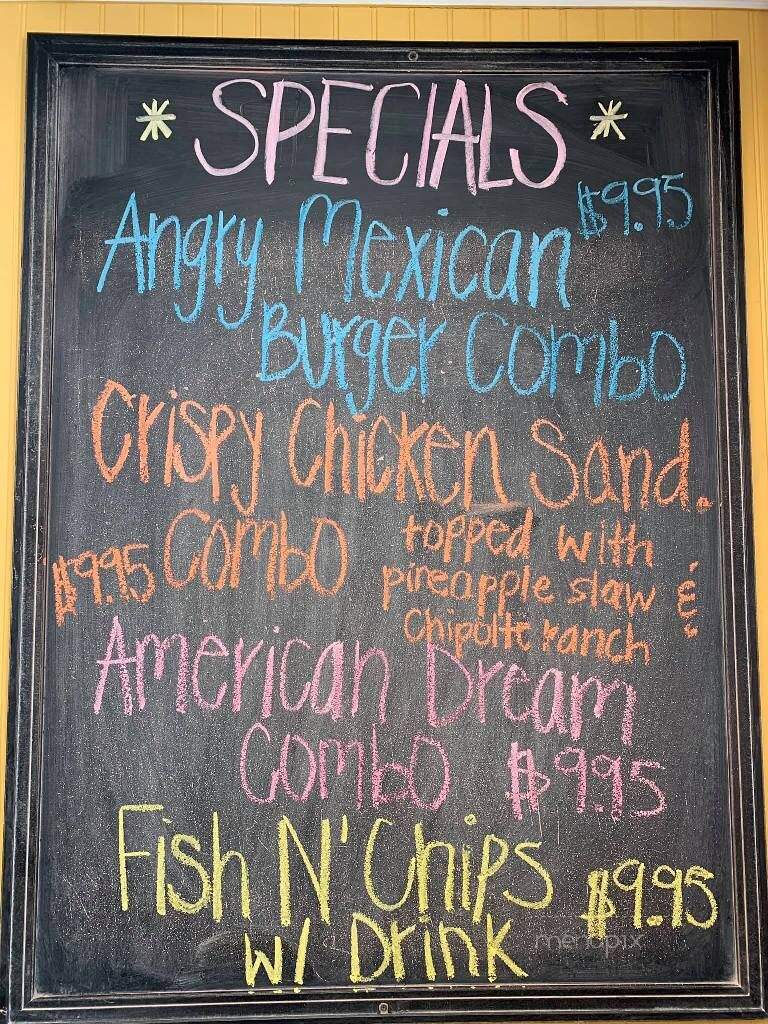 * SPECIALS *
Angry Mexican $9.95
Burger Combo
Crispy Chicken Sand.
$9.95 Combo
topped with
pineapple slaw &
Chipolte ranch
American Dream
Combo $9.95
Fish N' Chips $9.95
w/ Drink
menupix